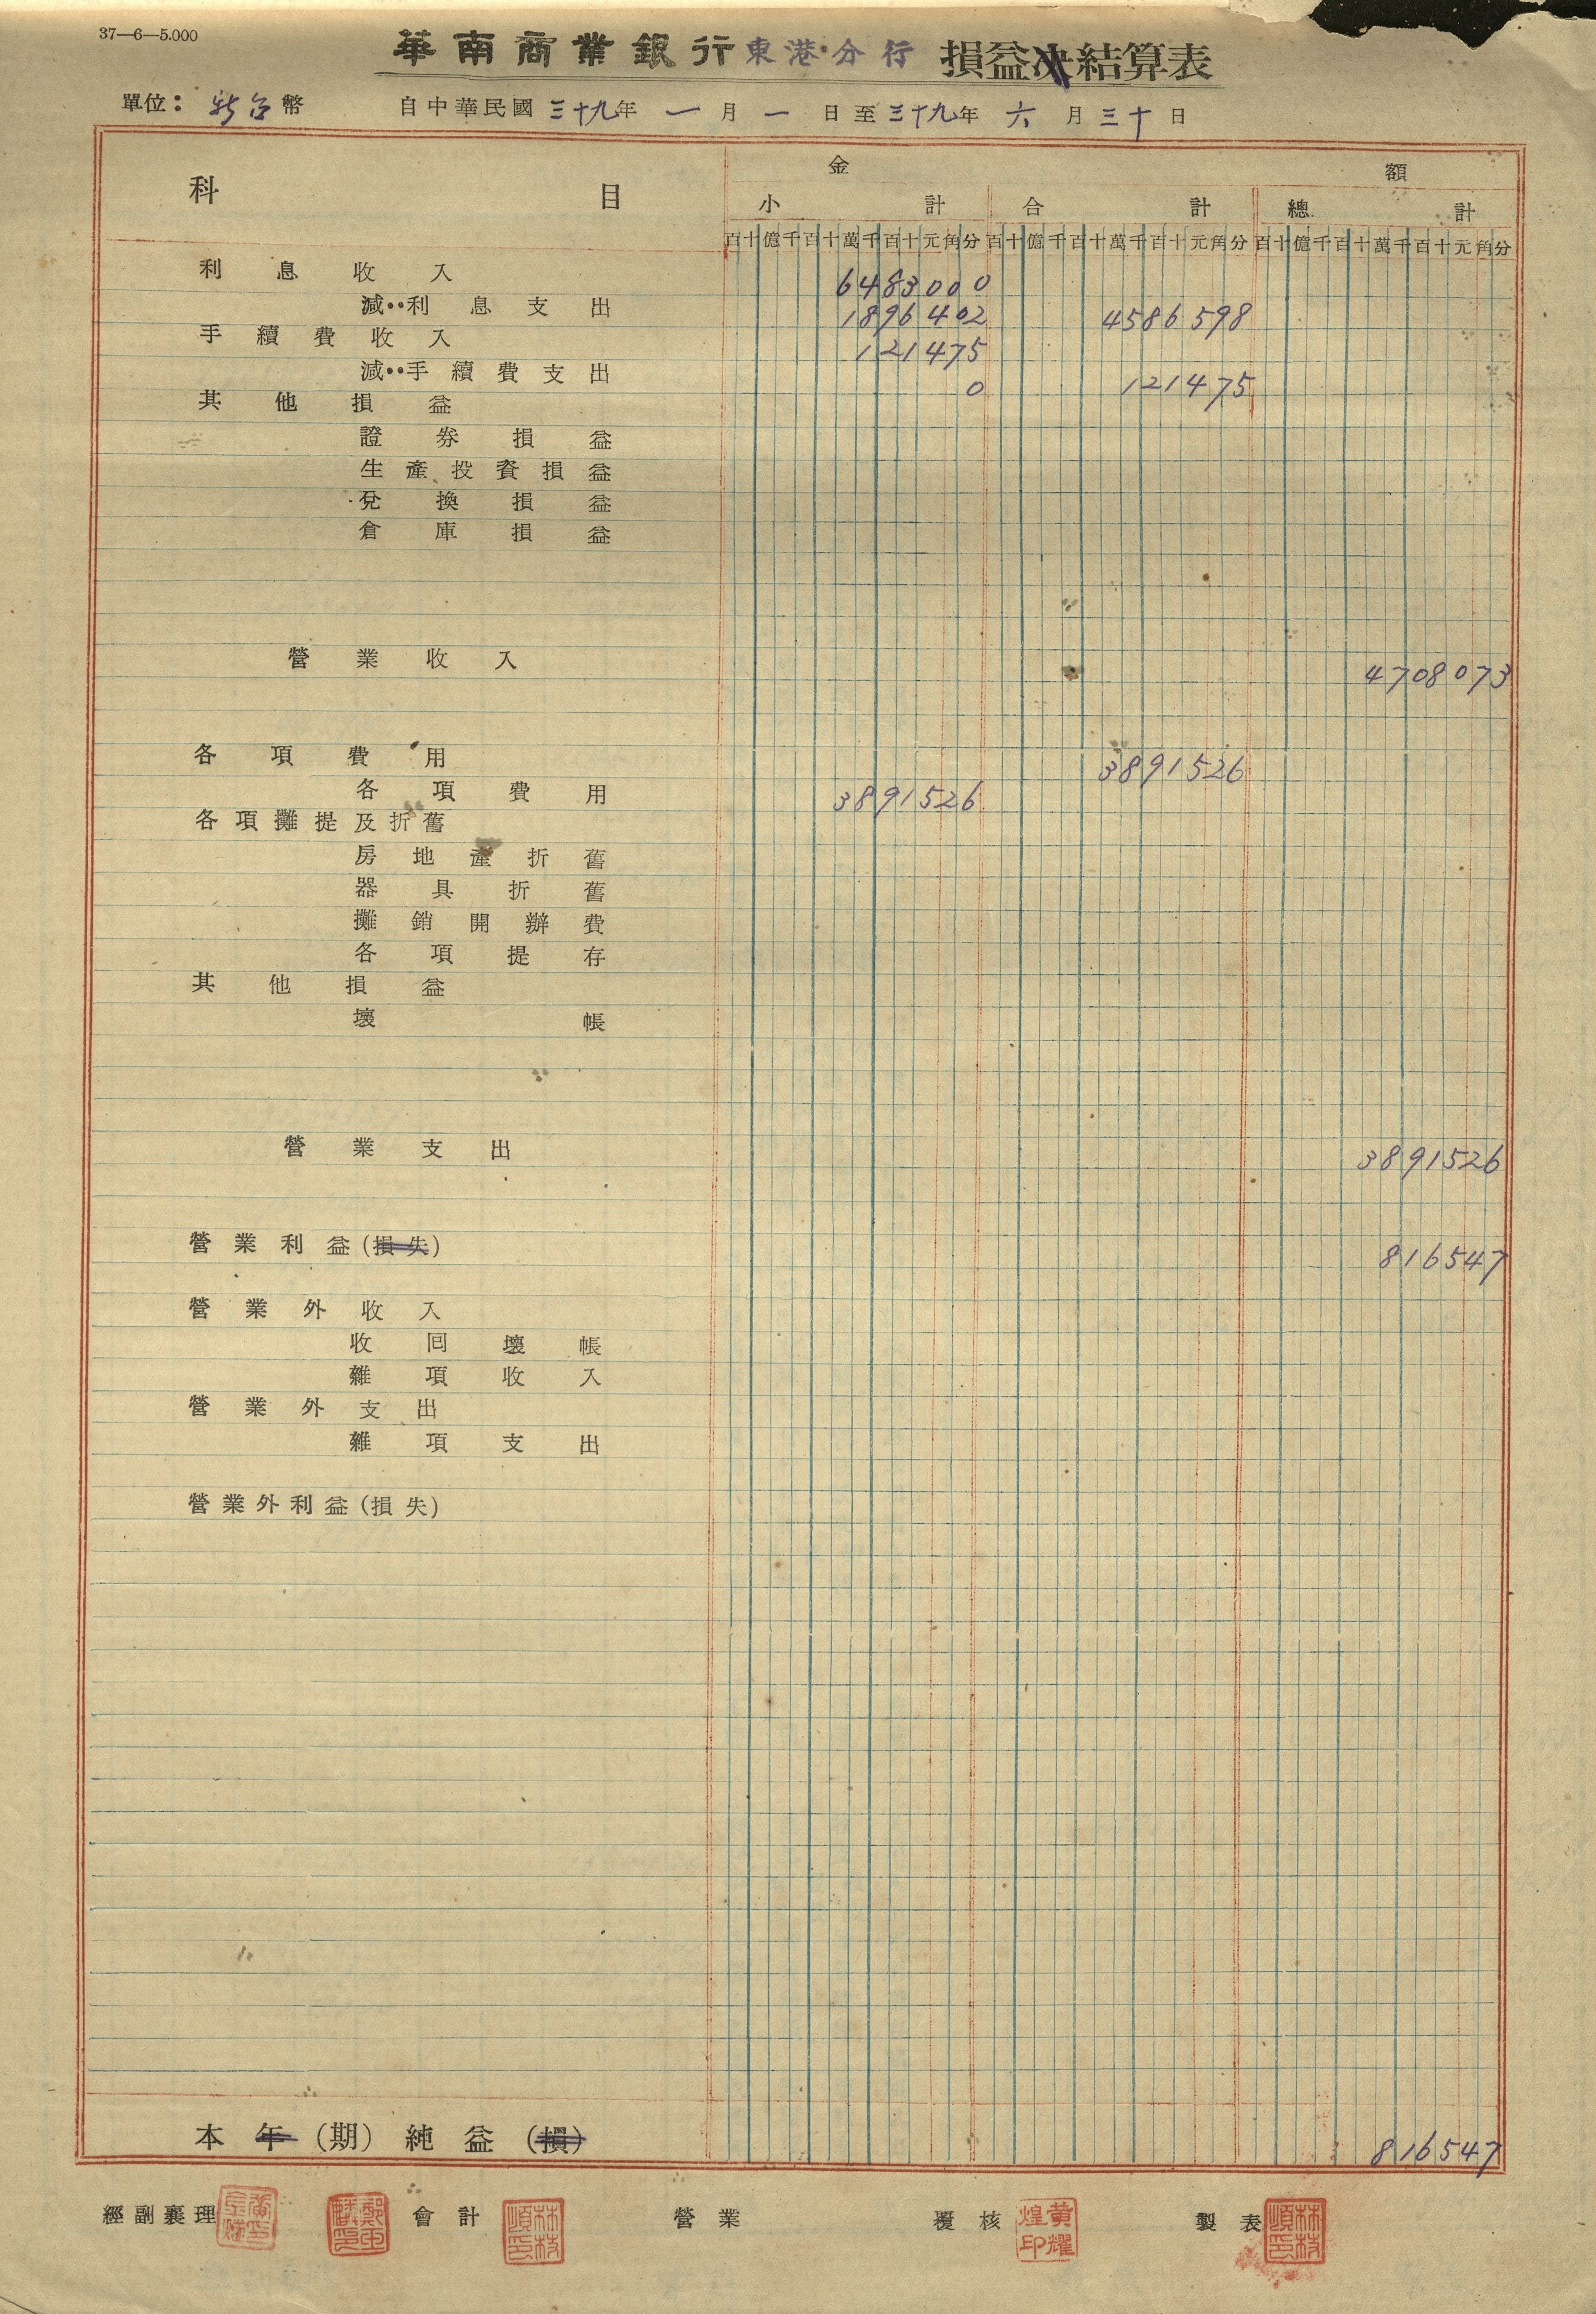 37—6—5.000
華南商業銀行東港分行 損益決結算表
單位：新台幣 自中華民國三十九年一月一日至三十九年六月三十日
科目 金額
小計 合計 總計
百十億千百十萬千百十元角分 百十億千百十萬千百十元角分 百十億千百十萬千百十元角分
利息收入 6483000
減：利息支出 1896402 4586598
手續費收入 121475
減：手續費支出 0 121475
其他損益
證券損益
生產投資損益
兌換損益
倉庫損益
營業收入 4708073
各項費用 3891526
各項費用 3891526
各項攤提及折舊
房地產折舊
器具折舊
攤銷開辦費
各項提存
其他損益
壞帳
營業支出 3891526
營業利益(損失) 816547
營業外收入
收回壞帳
雜項收入
營業外支出
雜項支出
營業外利益(損失)
本年(期)純益(損) 816547
經副襄理 會計 林枝順印 營業 覆核 黃耀煌印 製表 林枝順印